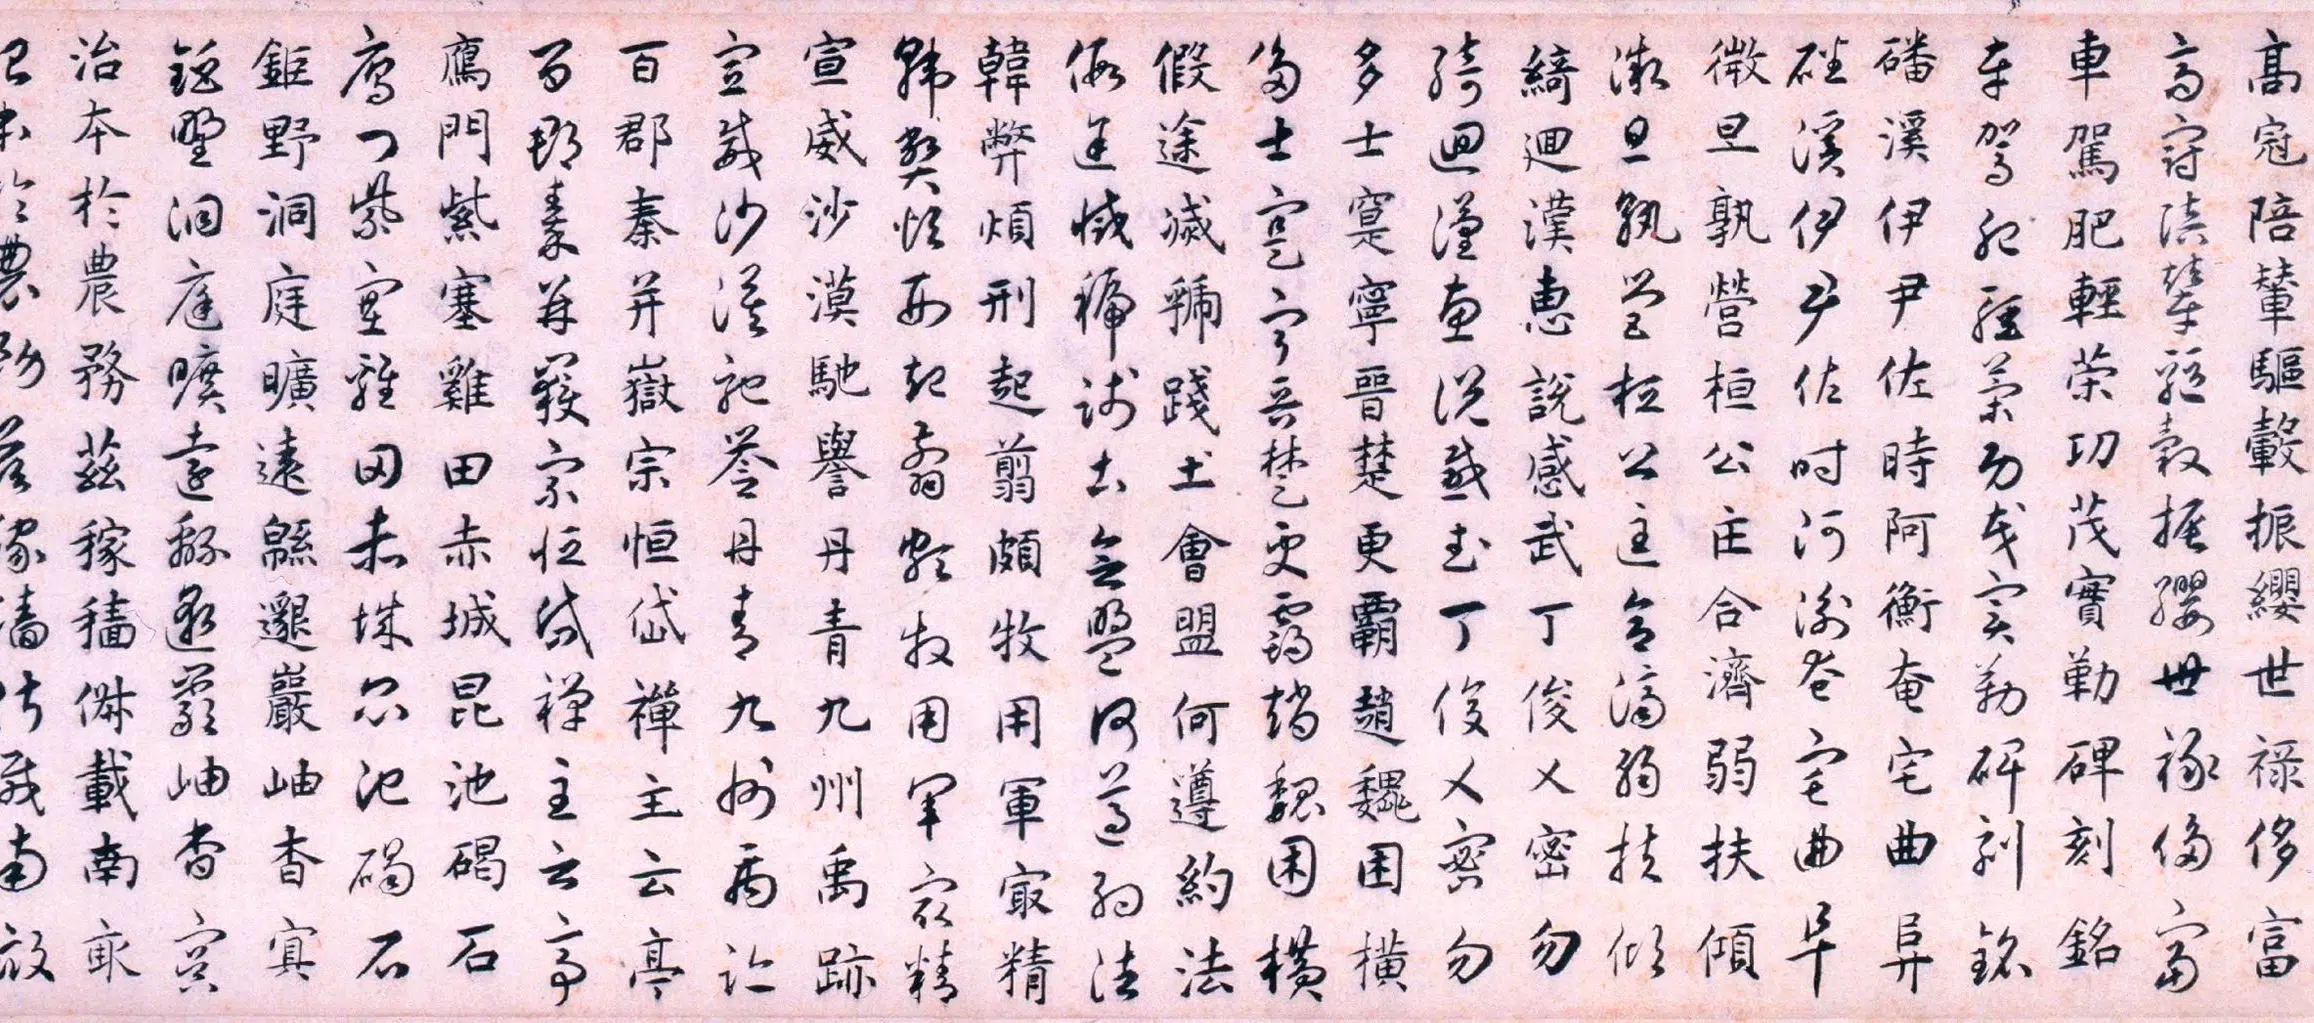 高冠陪輦驅轂振纓世禄侈富
高冠陪輦驅轂振纓世禄侈富
車駕肥輕策功茂實勒碑刻銘
車駕肥輕策功茂實勒碑刻銘
磻溪伊尹佐時阿衡奄宅曲阜
磻溪伊尹佐時阿衡奄宅曲阜
微旦孰營桓公匡合濟弱扶傾
微旦孰營桓公匡合濟弱扶傾
綺迴漢惠説感武丁俊乂密勿
綺迴漢惠説感武丁俊乂密勿
多士寔寧晉楚更覇趙魏困橫
多士寔寧晉楚更覇趙魏困橫
假途滅虢踐土會盟何遵約法
假途滅虢踐土會盟何遵約法
韓弊煩刑起翦頗牧用軍冣精
韓弊煩刑起翦頗牧用軍冣精
宣威沙漠馳譽丹青九州禹跡
宣威沙漠馳譽丹青九州禹跡
百郡秦并嶽宗恒岱禪主云亭
百郡秦并嶽宗恒岱禪主云亭
鴈門紫塞雞田赤城昆池碣石
鴈門紫塞雞田赤城昆池碣石
鉅野洞庭曠遠緜邈巖岫杳冥
鉅野洞庭曠遠緜邈巖岫杳冥
治本於農務茲稼穡俶載南畝
治本於農務茲稼穡俶載南畝